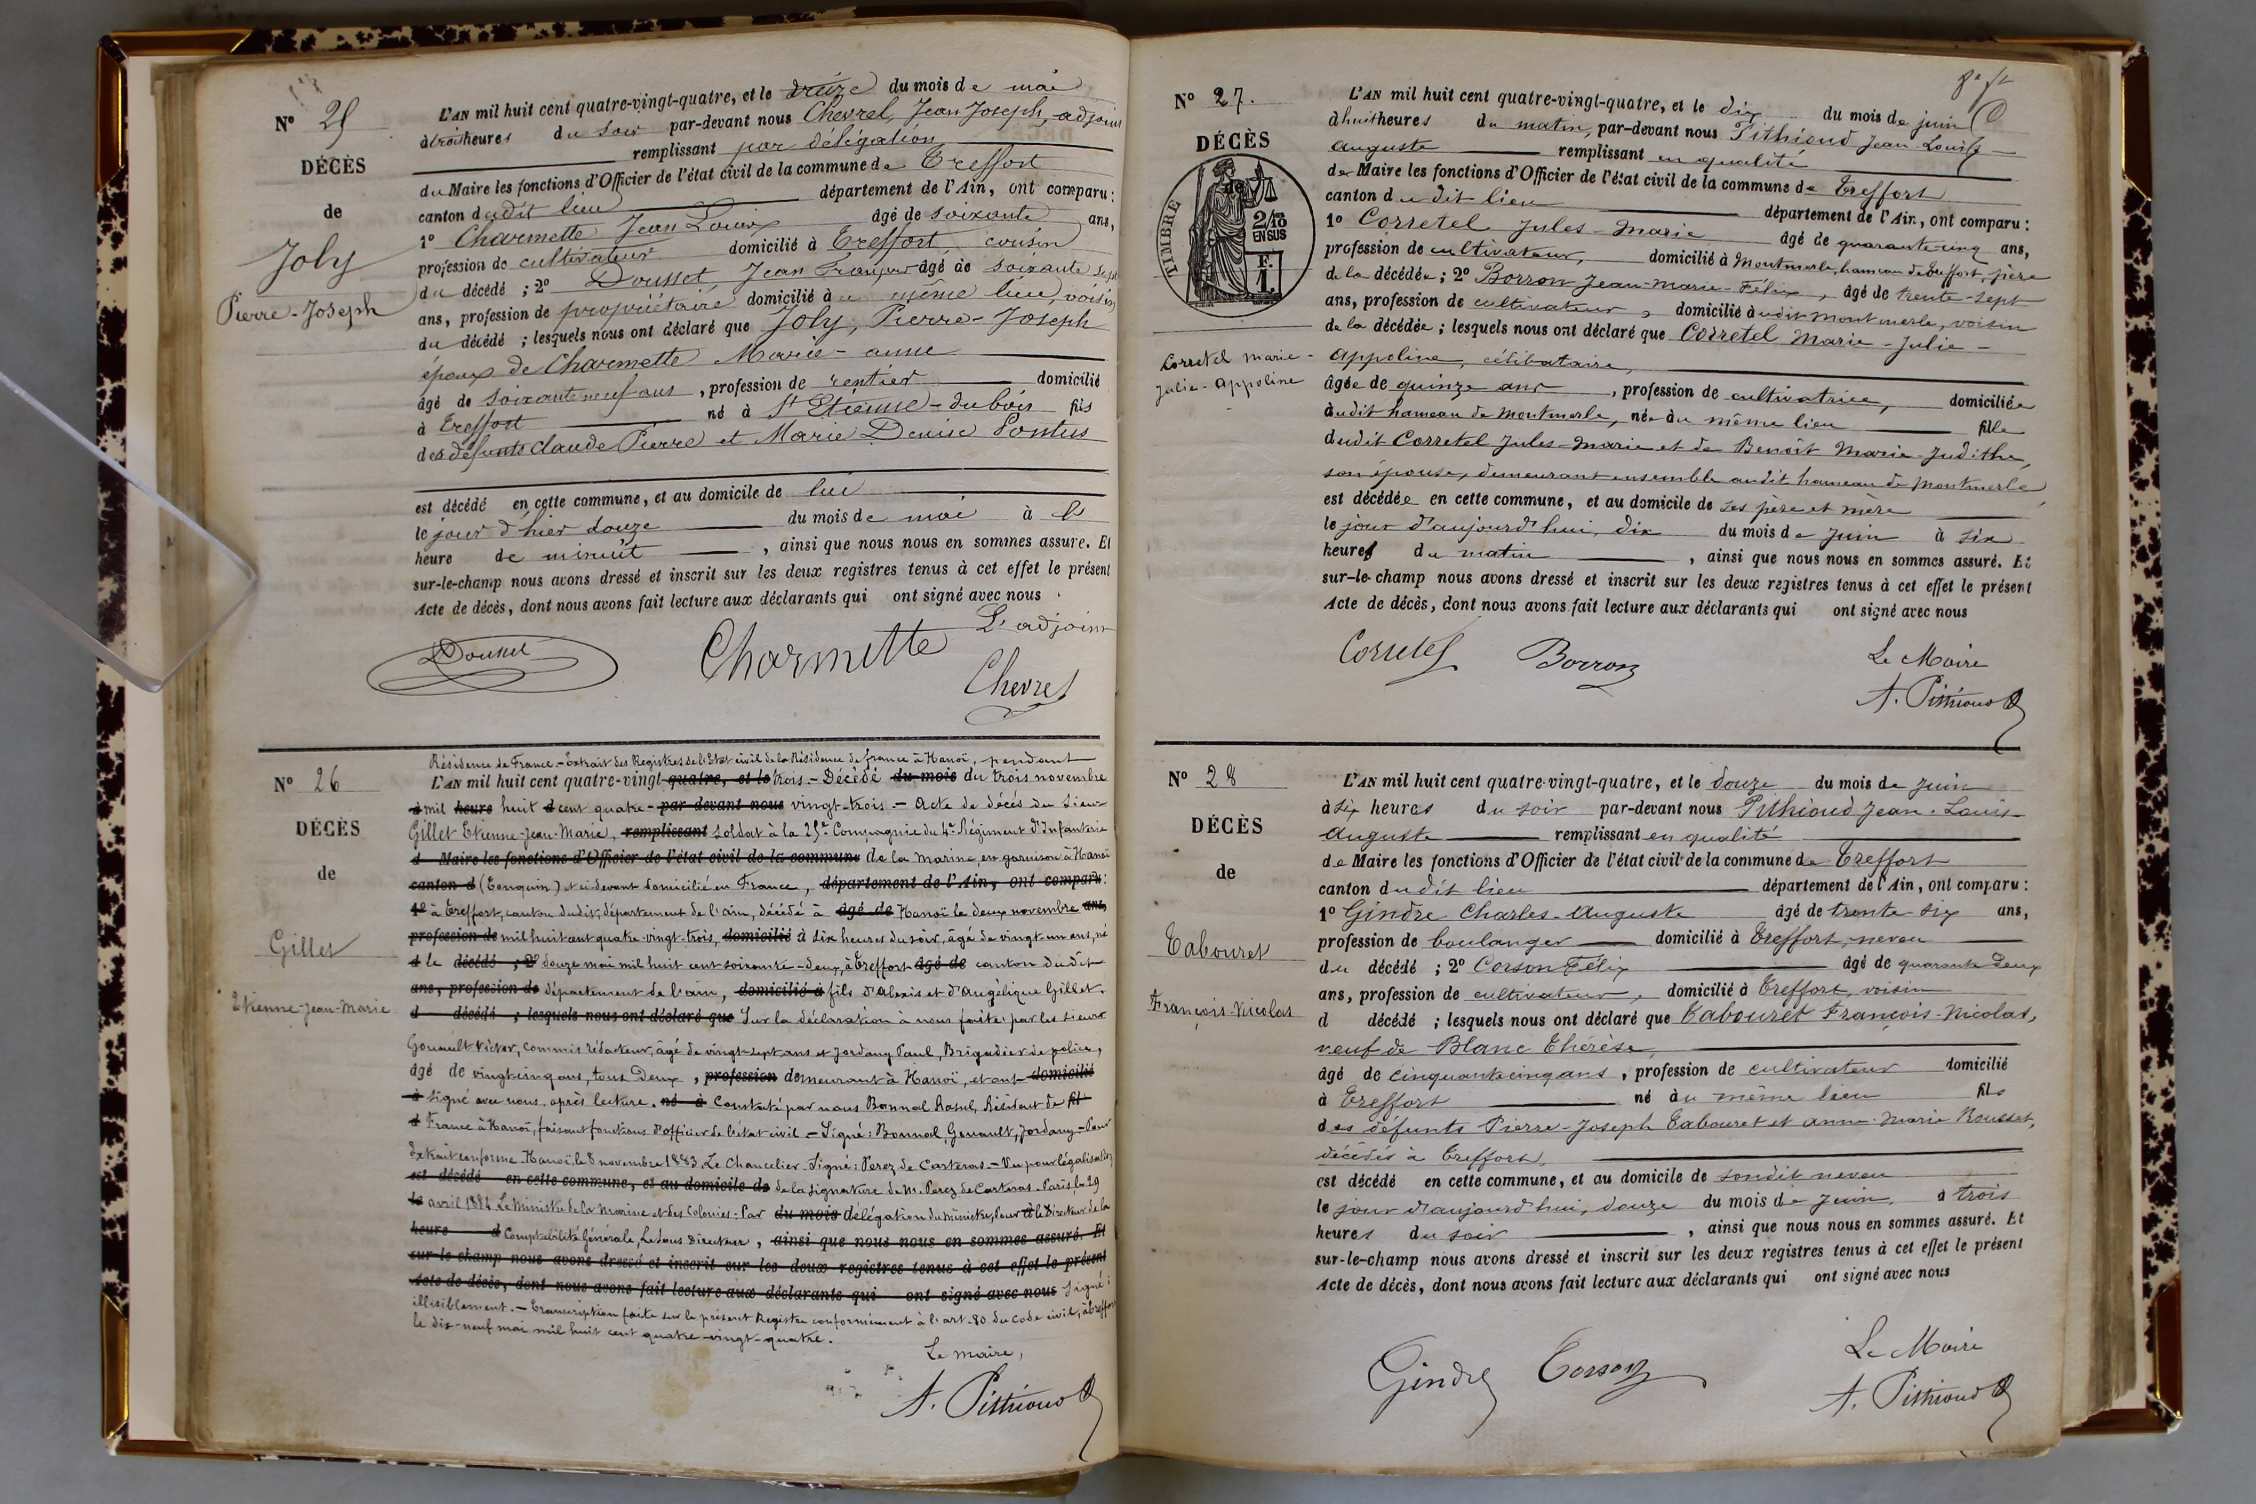 Nº 25
DÉCÈS
de
Joly
Pierre-Joseph
L'AN mil huit cent quatre-vingt-quatre, et le treize du mois de mai
à trois heures du soir par-devant nous Chevrel, Jean Joseph, adjoint
remplissant par délégation
du Maire les fonctions d'Officier de l'état civil de la commune de Treffort
canton dudit lieu département de l'Ain, ont comparu :
1º Charmette Jean Louis âgé de soixante ans,
profession de cultivateur domicilié à Treffort, cousin
du décédé ; 2º Dousset, Jean François âgé de soixante sept
ans, profession de propriétaire domicilié au même lieu, voisin
du décédé ; lesquels nous ont déclaré que Joly, Pierre-Joseph
époux de Charmette Marie-anne
âgé de soixante neuf ans, profession de rentier domicilié
à Treffort né à St Etienne-du bois fils
des défunts Claude Pierre et Marie Denise Pontus
est décédé en cette commune, et au domicile de lui
le jour d'hier douze du mois de mai à
heure de minuit, ainsi que nous nous en sommes assuré. Et
sur-le-champ nous avons dressé et inscrit sur les deux registres tenus à cet effet le présent
Acte de décès, dont nous avons fait lecture aux déclarants qui ont signé avec nous.
L'adjoint
Dousset Charmette
Chevrel
Nº 26
DÉCÈS
de
Gillet
Etienne-Jean-Marie
Résidence de France.-Extrait des Registres de l'Etat civil de la Résidence de france à Hanoï, pendant
L'AN mil huit cent quatre-vingt-quatre, et le trois.- Décédé du mois du trois novembre
à mil heure huit d cent quatre- par-devant nous vingt-trois.- Acte de décès du sieur
Gillet Etienne-Jean-Marie, remplissant soldat à la 25e Compagnie du 4e Régiment d'Infanterie
d Maire les fonctions d'Officier de l'état civil de la commune de la marine, en garnison à Hanoï
canton d (Tonquin) et ci-devant domicilié en France, département de l'Ain, ont comparu :
1º à Treffort, canton dudit, département de l'ain, décédé à âgé de Hanoï le deux novembre ans,
profession de mil huit cent quatre-vingt-trois, domicilié à six heures du soir, âgé de vingt-un ans, né
d le décédé ; 2º douze mai mil huit cent soixante-deux, à Treffort âgé de canton dudit
ans, profession de département de l'ain, domicilié à fils d'Alexis et d'Angélique Gillet.
d décédé ; lesquels nous ont déclaré que Sur la déclaration à nous faite par les sieurs
Gouault Victor, commis rédacteur, âgé de vingt-sept ans et Jordany Paul, Brigadier de police,
âgé de vingt-cinq ans, tous deux, profession demeurant à Hanoï, et ont domicilié
à signé avec nous après lecture. né à Constaté par nous Bonnal Raoul, Résident de fil
d France à Hanoï, faisant fonctions d'officier de l'état civil - Signé : Bonnal, Gouault, Jordany - Pour
Extrait conforme Hanoï, le 8 novembre 1883. Le Chancelier. Signé : Perez de Carteras.- Vu pour légalisation
est décédé en cette commune, et au domicile de de la signature de M. Perez de Carteras. Paris, le 29
le avril 1884 Le Ministre de la Marine et des Colonies : Par du mois délégation du Ministre, Pour à le Directeur de la
heure d Comptabilité Générale, Le Sous Directeur, ainsi que nous nous en sommes assuré. Et
sur-le-champ nous avons dressé et inscrit sur les deux registres tenus à cet effet le présent
Acte de décès, dont nous avons fait lecture aux déclarants qui ont signé avec nous Signé :
illisiblement.- Transcription faite sur le présent Registre conformément à l'art. 80 du Code civil, à Treffort
le dix-neuf mai mil huit cent quatre-vingt-quatre.
Le maire,
A. Pithioud
Nº 27.
DÉCÈS
TIMBRE
2/10
EN SUS
F.
1.
Corretel Marie-
Julie-Appoline
L'AN mil huit cent quatre-vingt-quatre, et le dix du mois de juin
à huit heures du matin, par-devant nous Pithioud Jean-Louis-
Auguste remplissant en qualité
de Maire les fonctions d'Officier de l'état civil de la commune de Treffort
canton dudit lieu département de l'Ain, ont comparu :
1º Corretel Jules-Marie âgé de quarante-cinq ans,
profession de cultivateur, domicilié à Montmerle, hameau de Treffort, père
de la décédée ; 2º Borron Jean-Marie-Félix, âgé de trente-sept
ans, profession de cultivateur, domicilié audit Montmerle, voisin
de la décédée ; lesquels nous ont déclaré que Corretel Marie-Julie-
Appoline, célibataire,
âgée de quinze ans, profession de cultivatrice, domiciliée
audit hameau de Montmerle, née au même lieu fille
dudit Corretel Jules-Marie et de Benoît Marie-Judithe,
son épouse, demeurant ensemble audit hameau de Montmerle
est décédée en cette commune, et au domicile de ses père et mère
le jour d'aujourd'hui, dix du mois de Juin à six
heures du matin, ainsi que nous nous en sommes assuré. Et
sur-le-champ nous avons dressé et inscrit sur les deux registres tenus à cet effet le présent
Acte de décès, dont nous avons fait lecture aux déclarants qui ont signé avec nous
Corretel Borron
Le Maire
A. Pithioud
Nº 28
DÉCÈS
de
Tabouret
François-Nicolas
L'AN mil huit cent quatre-vingt-quatre, et le douze du mois de Juin
à six heures du soir par-devant nous Pithioud Jean-Louis-
Auguste remplissant en qualité
de Maire les fonctions d'Officier de l'état civil de la commune de Treffort
canton dudit lieu département de l'Ain, ont comparu :
1º Gindre Charles-Auguste âgé de trente-six ans,
profession de boulanger domicilié à Treffort, neveu
du décédé ; 2º Corson Félix âgé de quarante deux
ans, profession de cultivateur, domicilié à Treffort, voisin
d décédé ; lesquels nous ont déclaré que Tabouret François-Nicolas,
veuf de Blanc Thérèse,
âgé de cinquante cinq ans, profession de cultivateur domicilié
à Treffort né au même lieu fils
des défunts Pierre-Joseph Tabouret et Anne-Marie Rousset,
décédés à Treffort,
est décédé en cette commune, et au domicile de sondit neveu
le jour d'aujourd'hui, douze du mois de Juin, à trois
heures du soir, ainsi que nous nous en sommes assuré. Et
sur-le-champ nous avons dressé et inscrit sur les deux registres tenus à cet effet le présent
Acte de décès, dont nous avons fait lecture aux déclarants qui ont signé avec nous
Gindre Corson
Le Maire
A. Pithioud